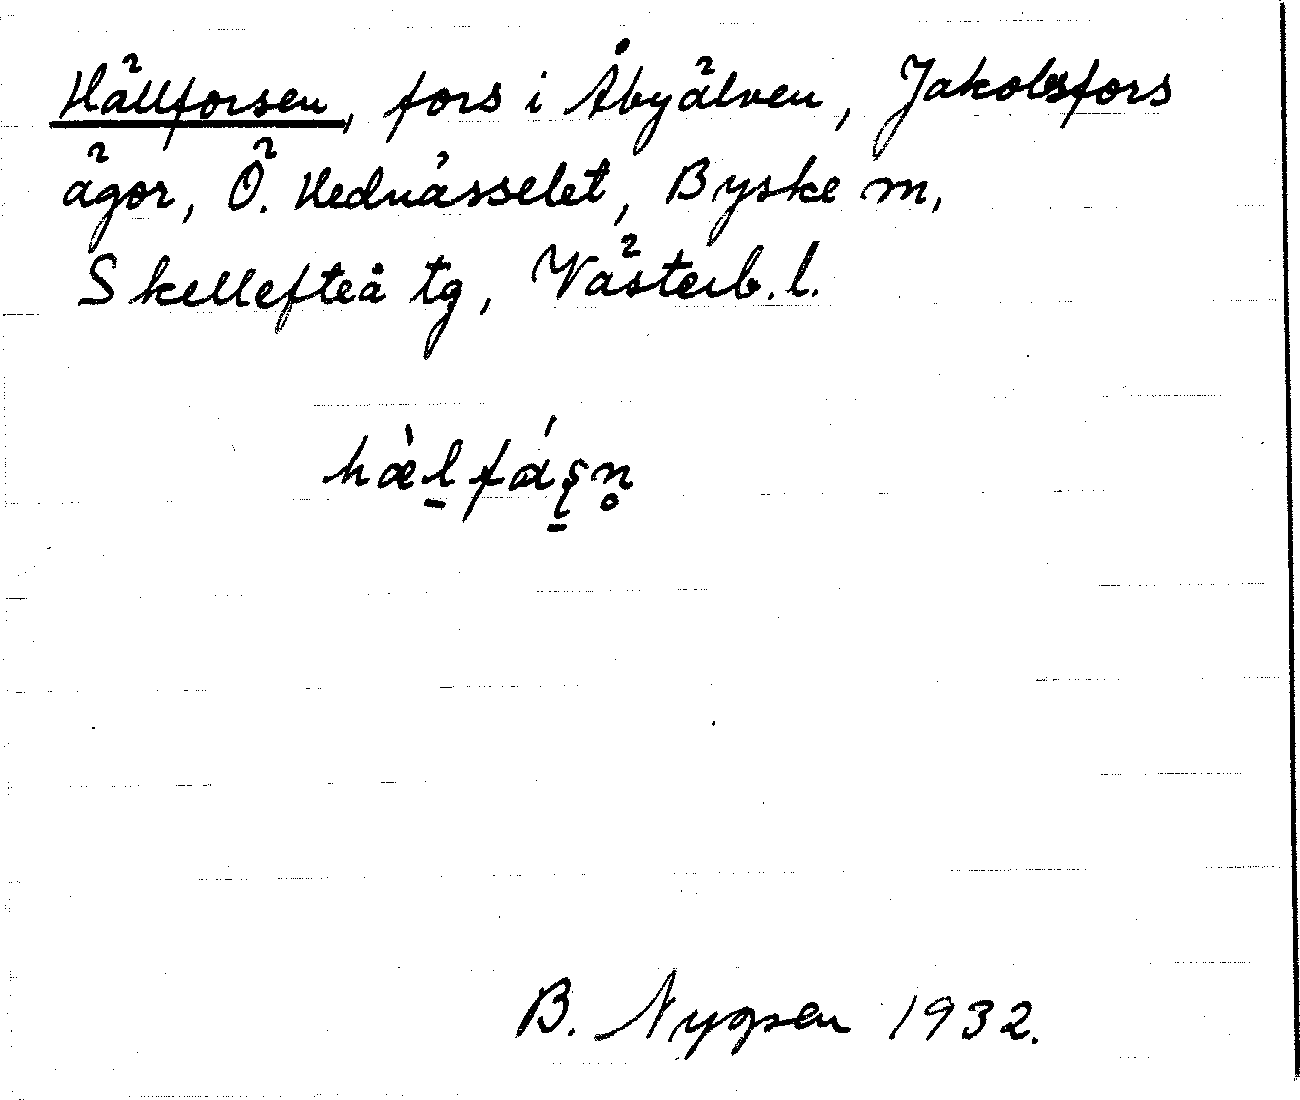 Hällforsen, fors i Åbyälven, Jakobsfors
ägor, Ö. Hednässelet, Byske m,
Skellefteå tg, Västerb. l.
hæ̀l̠fɑ́ʂn̥
B. Nygren 1932.